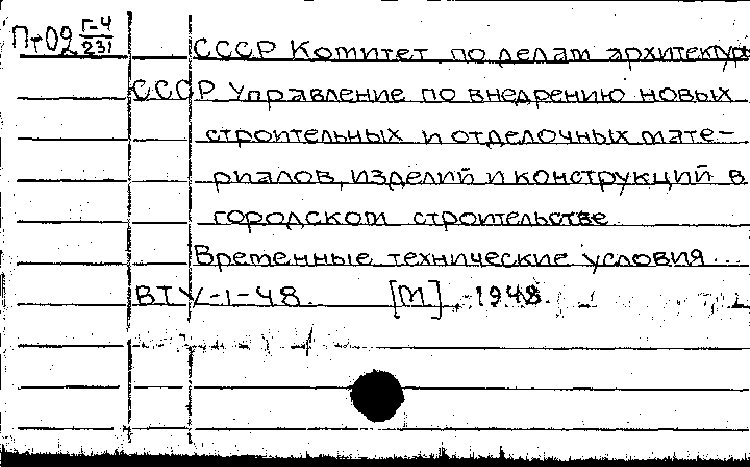 Пт-02 Г-4/231
СССР Комитет по делам архитектуры
СССР Управление по внедрению новых
строительных и отделочных мате-
риалов, изделий и конструкций в
городском строительстве
Временные технические условия...
ВТУ-1-48. [М], 1948.